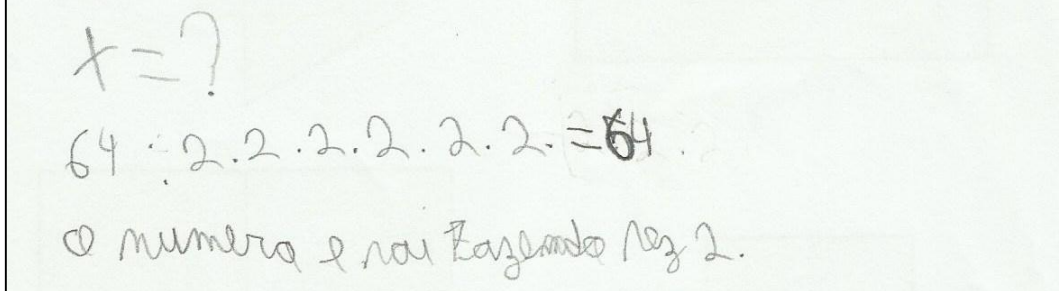 x = ?
64 ÷ 2.2.2.2.2.2. = 64
O numero e vai fazendo vez 2.